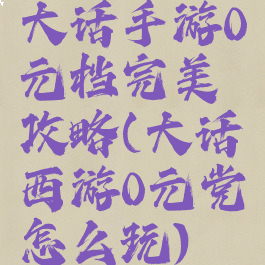 大话手游0
元档完美
攻略(大话
西游0元党
怎么玩)